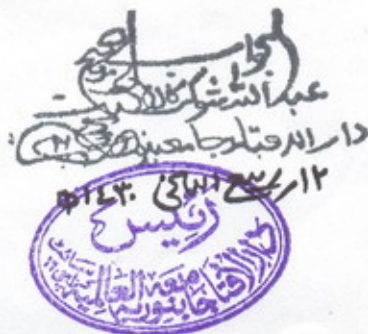 الجواب صحیح
عبد اللہ شوکت
دار الافتاء جامعہ بنوریہ
۱۲/ربیع الثانی ۱۴۳۰ھ
رئیس
دارالافتاء جامعہ بنوریہ العالمیہ